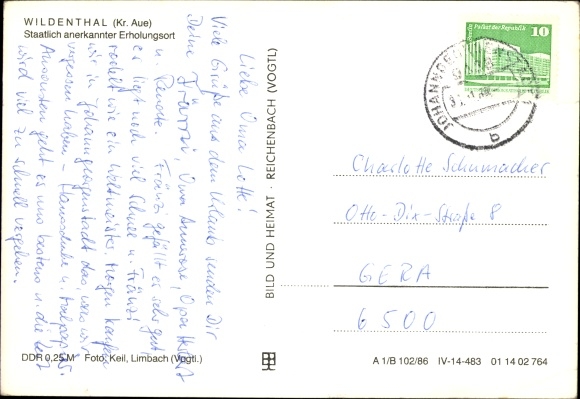 WILDENTHAL (Kr. Aue)
Staatlich anerkannter Erholungsort
Liebe Oma Lotte!
Viele Grüße aus dem Urlaub senden Dir
Deine Fränzi, Oma Annerose, Opa Herbert
u. Renate. Fränzi gefällt es sehr gut
es liegt noch viel Schnee u. Fränzi
rodelt wie ein Weltmeister. Morgen kaufen
wir in Johanngeorgenstadt das, was wir
vergessen haben - Handschuhe u.
Ansonsten geht es uns bestens u. die Zeit
wird viel zu schnell vergehen.
BILD UND HEIMAT · REICHENBACH (VOGTL)
Palast der Republik 10
Charlotte Schumacher
Otto-Dix-Straße 8
GERA
6500
DDR 0,25 M Foto: Keil, Limbach (Vogtl.)
A 1/B 102/86 IV-14-483 01 14 02 764